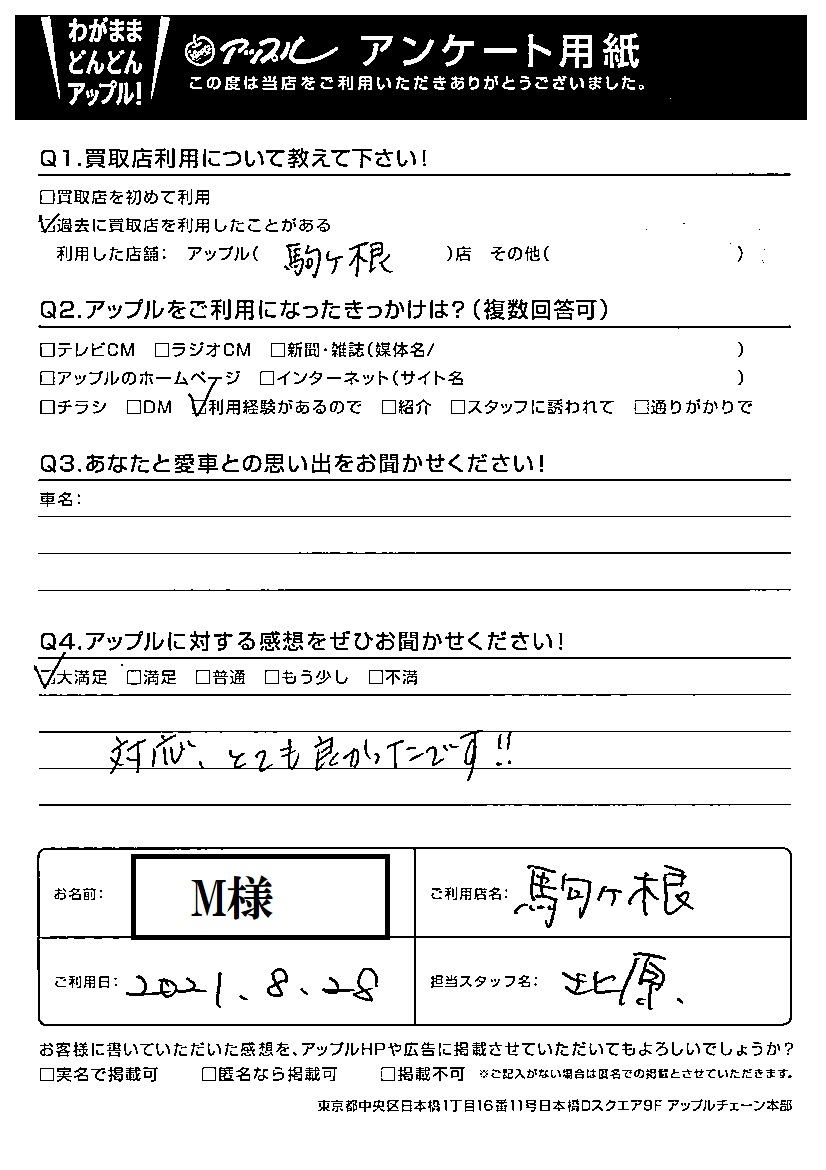 わがまま
どんどん
アップル!
アップル アンケート用紙
この度は当店をご利用いただきありがとうございました。
Q1.買取店利用について教えて下さい!
□買取店を初めて利用
☑過去に買取店を利用したことがある
利用した店舗: アップル( 駒ヶ根 )店 その他( )
Q2.アップルをご利用になったきっかけは?(複数回答可)
□テレビCM □ラジオCM □新聞・雑誌(媒体名/ )
□アップルのホームページ □インターネット(サイト名 )
□チラシ □DM ☑利用経験があるので □紹介 □スタッフに誘われて □通りがかりで
Q3.あなたと愛車との思い出をお聞かせください!
車名:
Q4.アップルに対する感想をぜひお聞かせください!
☑大満足 □満足 □普通 □もう少し □不満
対応、とても良かったです!!
お名前: M様 ご利用店名: 駒ヶ根
ご利用日: 2021.8.28 担当スタッフ名: 北原
お客様に書いていただいた感想を、アップルHPや広告に掲載させていただいてもよろしいでしょうか?
□実名で掲載可 □匿名なら掲載可 □掲載不可 ※ご記入がない場合は匿名での掲載とさせていただきます。
東京都中央区日本橋1丁目16番11号日本橋Dスクエア9F アップルチェーン本部